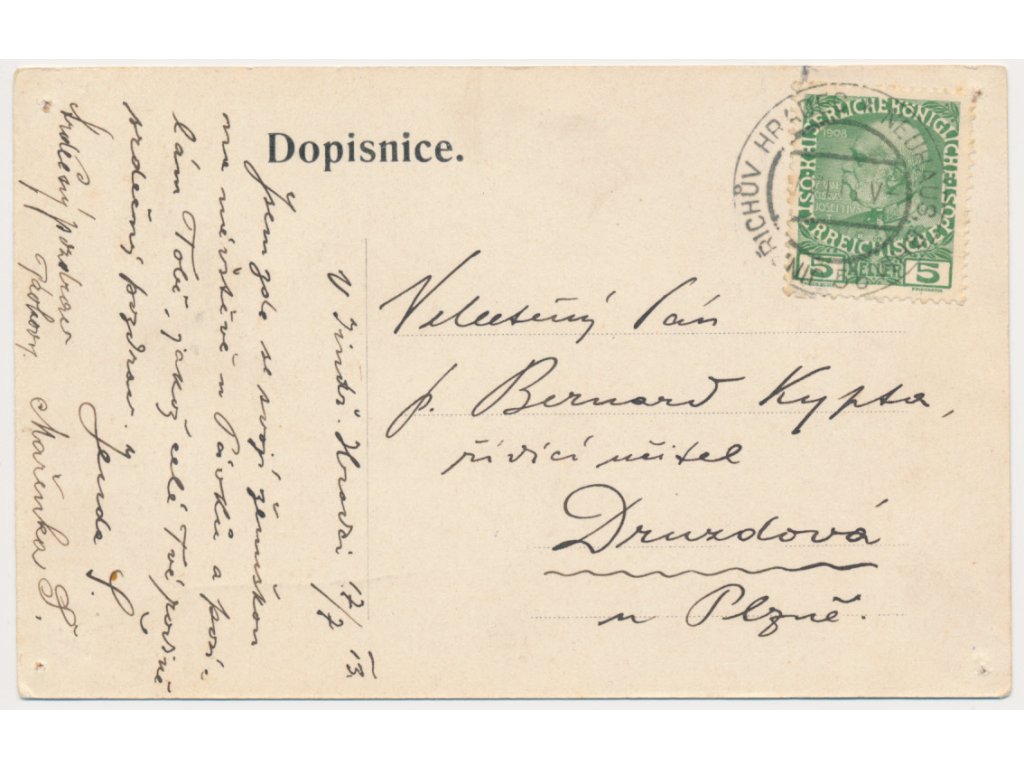 Dopisnice.
V Jindř. Hradci 17/7 13.
Jsem zde se svojí ženuškou
na návštěvě u Pávků a posí-
lám Tobě, jakož celé Tvé rodině
srdečný pozdrav
Jenda Š.
Srdečný pozdrav
Mařenka Š.
Velectěný Pán
p. Bernard Kypta,
řídící učitel
Druzdová
u Plzně.
JINDŘICHŮV HRADEC
NEUHAUS
KAISERLICHE KÖNIGLICHE ÖSTERREICHISCHE POST
1908
5 HELLER 5